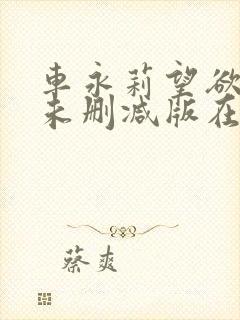 車永莉望欲
未删减版在
蔡爽